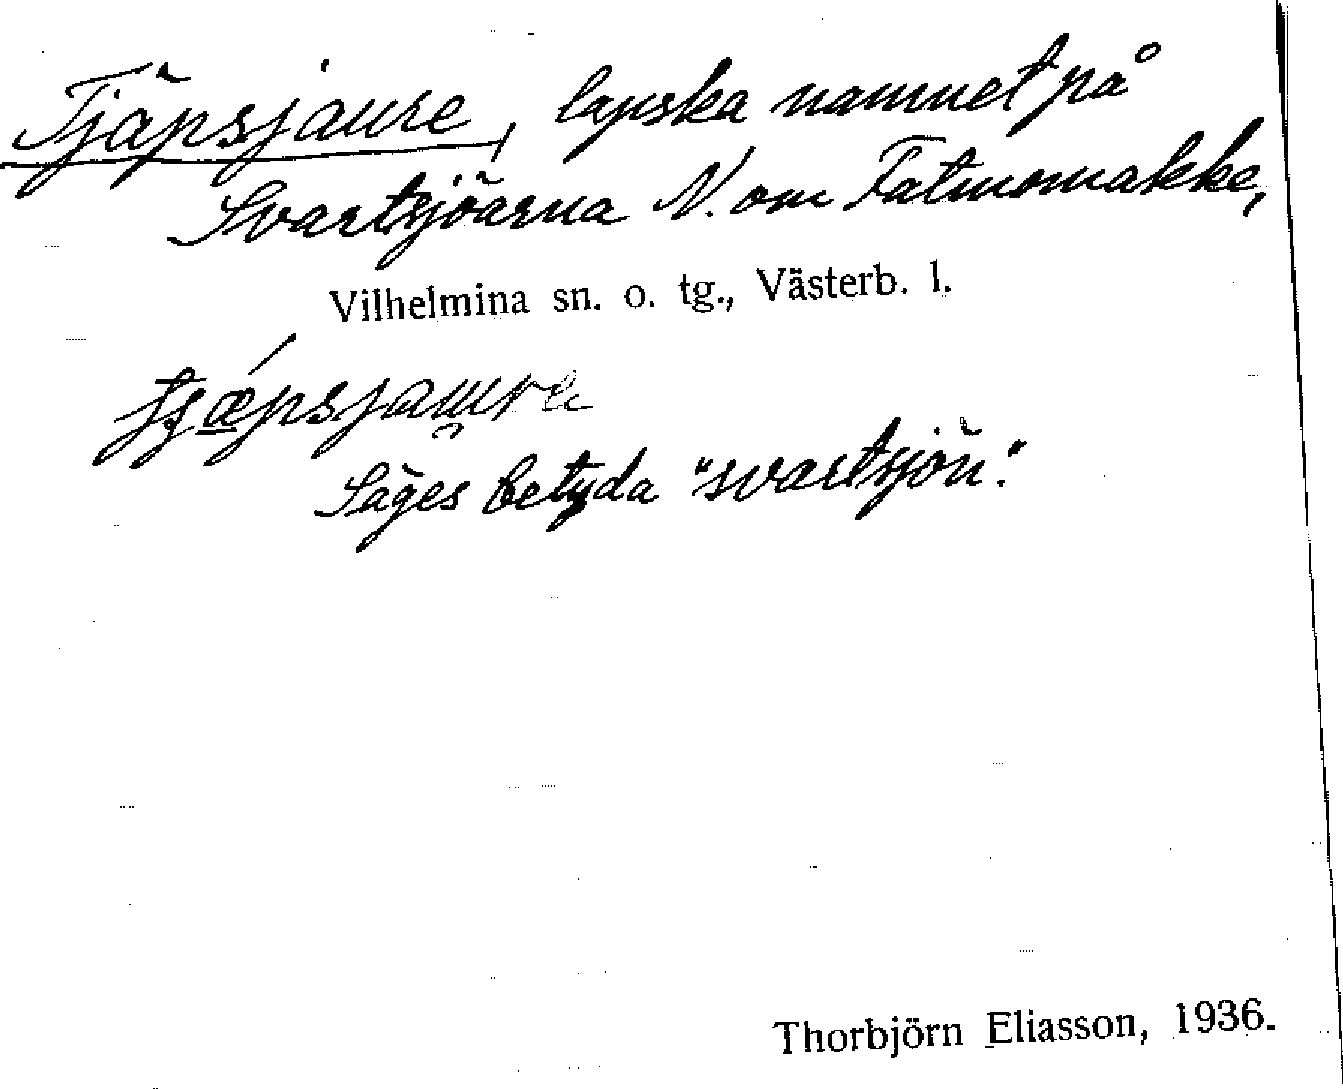 Tjäpsjaure, lapska namnet på
Svartsjöarna N. om Fatmomakke,
Vilhelmina sn. o. tg., Västerb. l.
tjǽpsjau̯re
Säges betyda "svartsjön".
Thorbjörn Eliasson, 1936.